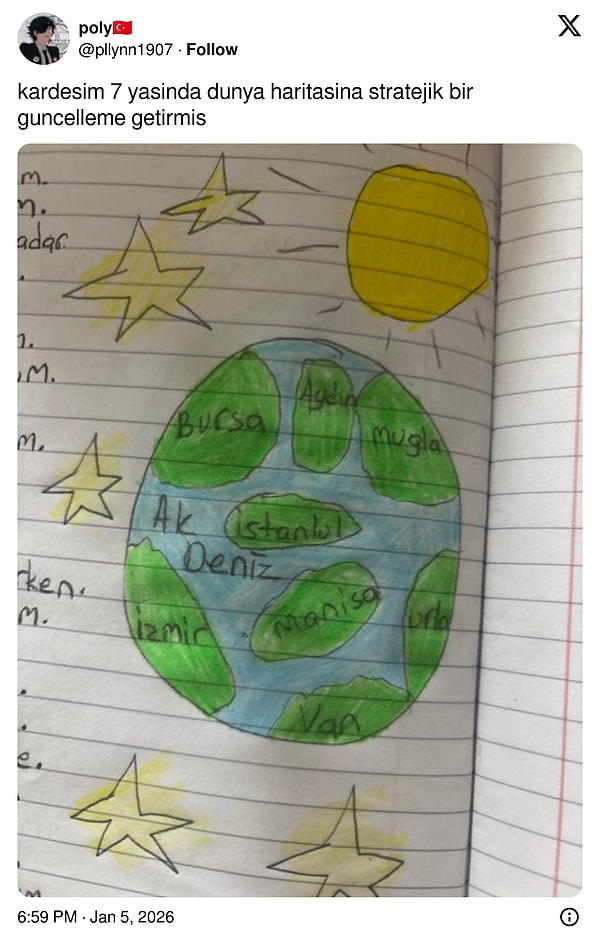 poly🇹🇷
@pllynn1907 · Follow
kardesim 7 yasinda dunya haritasina stratejik bir
guncelleme getirmis
m.
n.
adar.
.
n.
M.
m.
rken.
m.
.
.
e.
m
Bursa
Aydın
mugla
Ak
Deniz
istanbul
izmir
manisa
urla
Van
6:59 PM · Jan 5, 2026